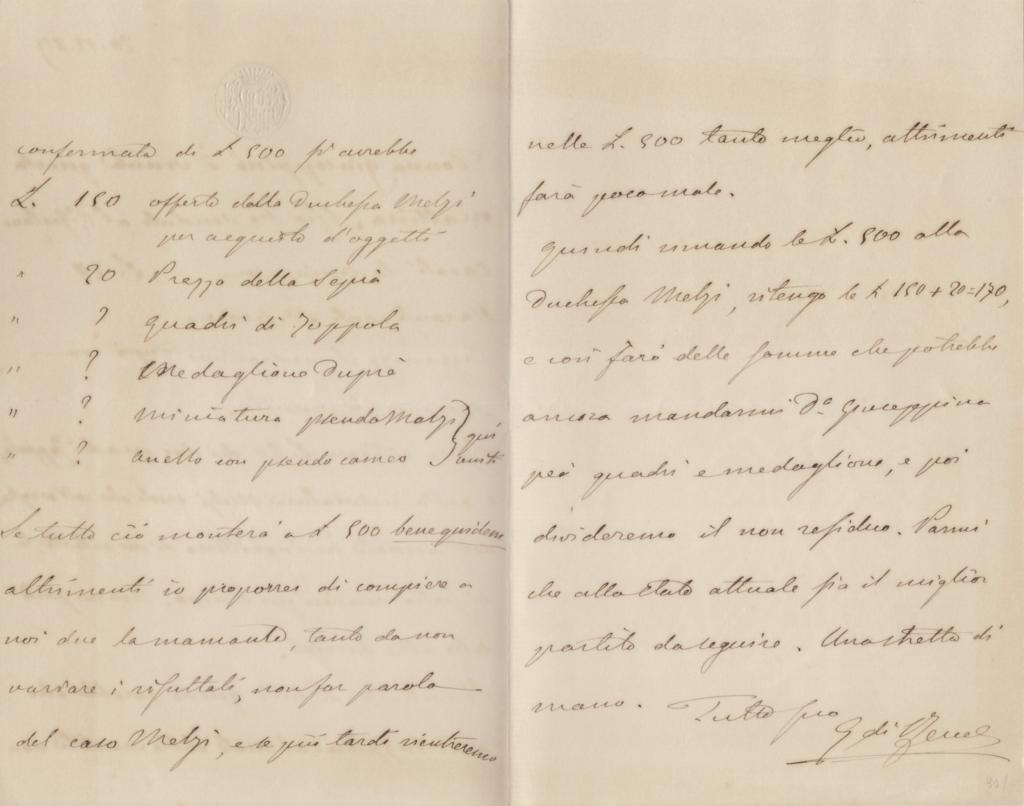 confermata di £ 500 si avrebbe
£. 150 offerte dalla Duchessa Melzi
per acquisto d'oggetti
" 20 Prezzo della Sepia
" ? quadri di Toppola
" ? Medaglione Duprè
" ? Miniatura pseudo Melzi } qui
" ? anello con pseudo cameo } uniti
Se tutto ciò monterà a £ 500 bene quidem
altrimenti io proporrei di compiere a
noi due la mancante, tanto da non
variare i risultati, non far parola
del caso Melzi, e se più tardi rientreremo
nelle £. 500 tanto meglio, altrimenti
sarà poco male.
Quindi rimando le £. 500 alla
Duchessa Melzi, ritengo le £ 150 + 20 = 170,
e così farò delle somme che potrebbe
ancora mandarmi Dª Giuseppina
peì quadri e medaglione, e poi
divideremo il non residuo. Parmi
che allo stato attuale sia il miglior
partito da seguire. Una stretta di
mano. Tutto suo
G di